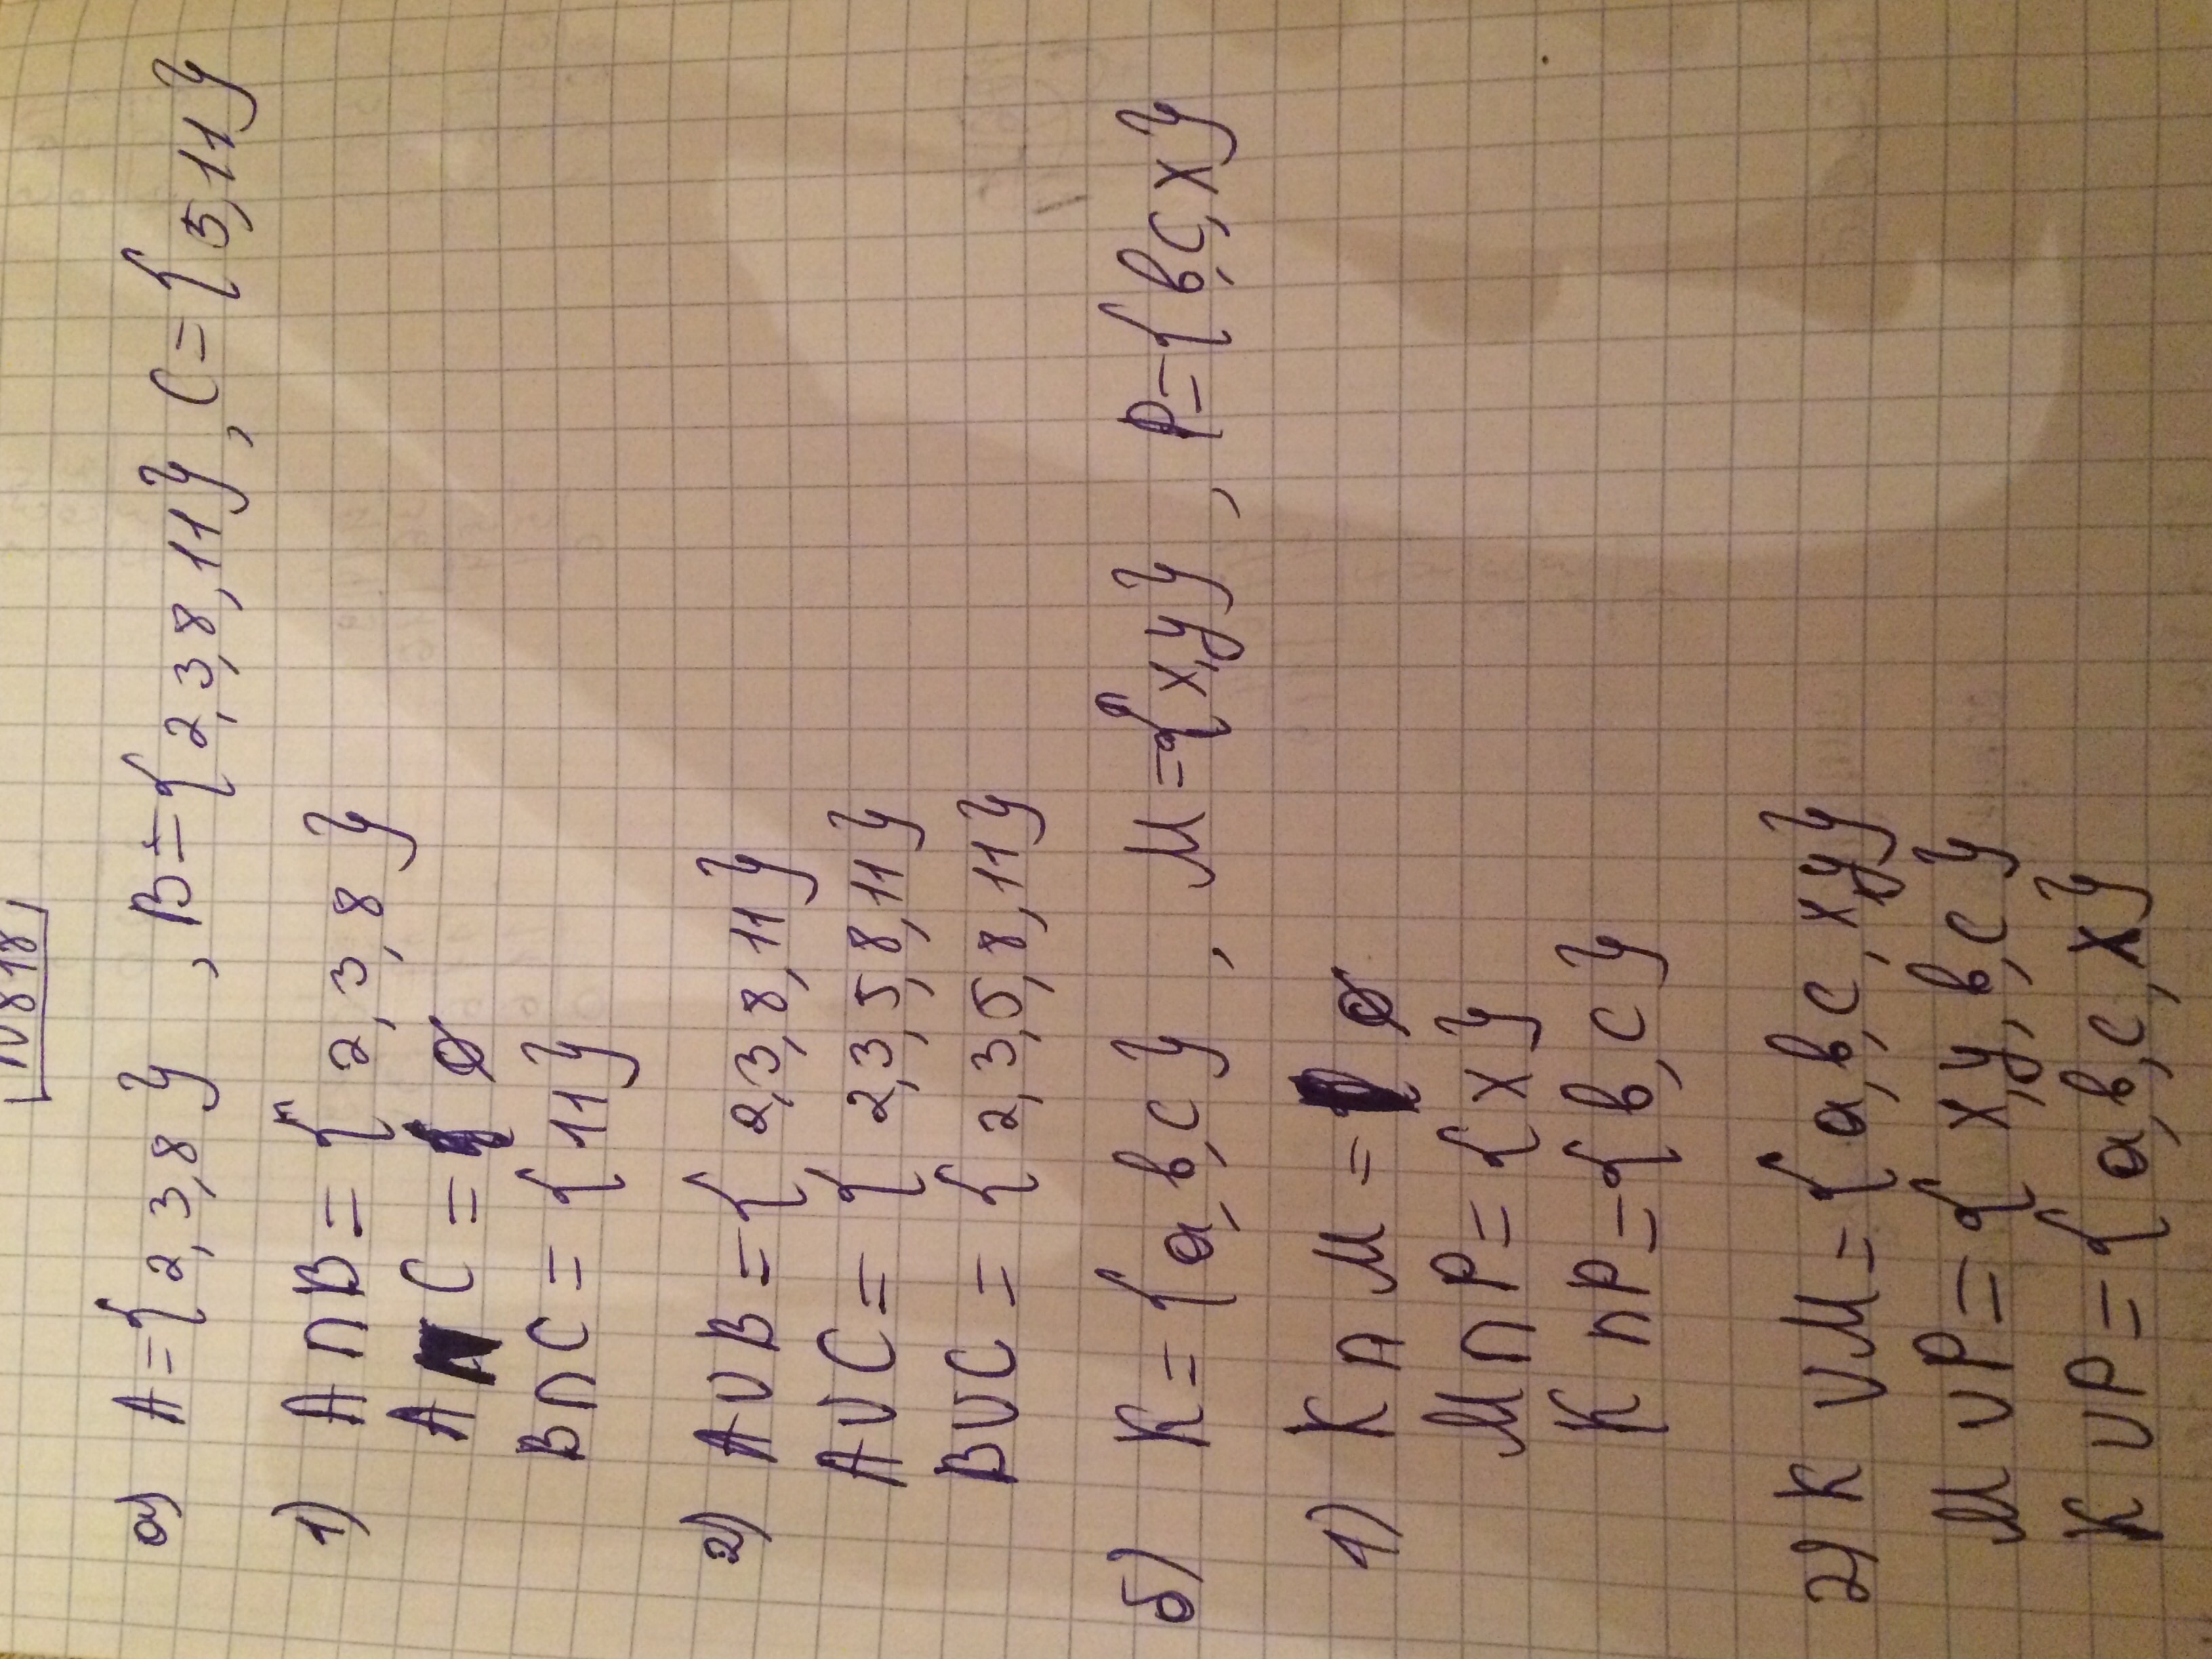 N818
а) A={2,3,8}, B={2,3,8,11}, C={5,11}
1) A∩B={2,3,8}
A∩C=∅
B∩C={11}
2) A∪B={2,3,8,11}
A∪C={2,3,5,8,11}
B∪C={2,3,5,8,11}
б) K={a,b,c}, M={x,y}, P={b,c,x}
1) K∩M=∅
M∩P={x}
K∩P={b,c}
2) K∪M={a,b,c,x,y}
M∪P={x,y,b,c}
K∪P={a,b,c,x}